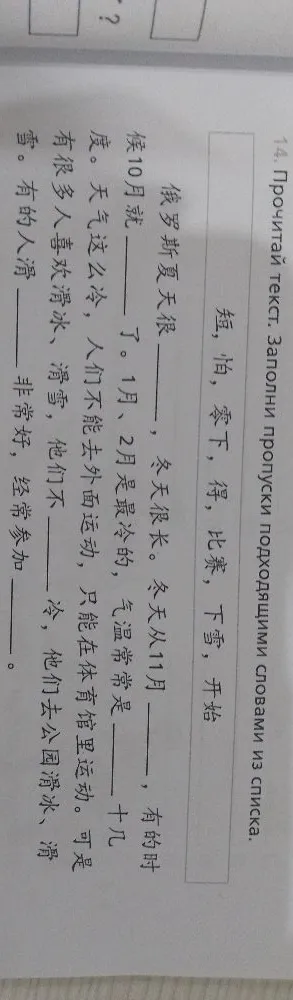 ?
14. Прочитай текст. Заполни пропуски подходящими словами из списка.
短，怕，零下，得，比赛，下雪，开始
俄罗斯夏天很______，冬天很长。冬天从11月______，有的时
候10月就______了。1月、2月是最冷的，气温常常是______十几
度。天气这么冷，人们不能去外面运动，只能在体育馆里运动。可是
有很多人喜欢滑冰、滑雪，他们不______冷，他们去公园滑冰、滑
雪。有的人滑______非常好，经常参加______。